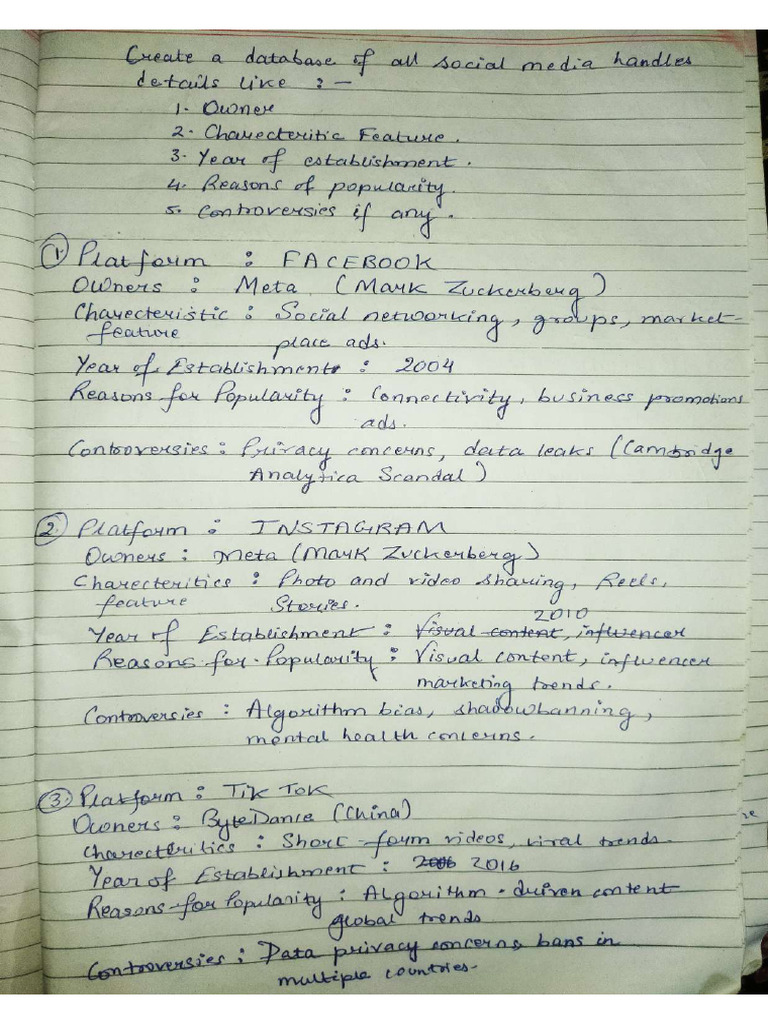 Create a database of all social media handles
details like :-
1. Owner
2. Charecteritic Feature.
3. Year of establishment.
4. Reasons of popularity.
5. Controversies if any.
1. Platform : FACEBOOK
Owners : Meta (Mark Zuckerberg)
Charecteristic : Social networking, groups, market-
feature place ads.
Year of Establishment : 2004
Reasons for Popularity : Connectivity, business promotions
ads.
Controversies : Privacy concerns, data leaks (Cambridge
Analytica Scandal)
2. Platform : INSTAGRAM
Owners : Meta (Mark Zuckerberg)
Charecteritics : Photo and video sharing, Reels,
feature Stories.
2010
Year of Establishment : Visual content, influencer
Reasons for Popularity : Visual content, influencer
marketing trends.
Controversies : Algorithm bias, shadowbanning,
mental health concerns.
3. Platform : Tik Tok
Owners : ByteDance (China)
Charecteritics : Short-form videos, viral trends.
Year of Establishment : 2016
Reasons for Popularity : Algorithm-driven content
global trends
Controversies : Data privacy concerns, bans in
multiple countries.